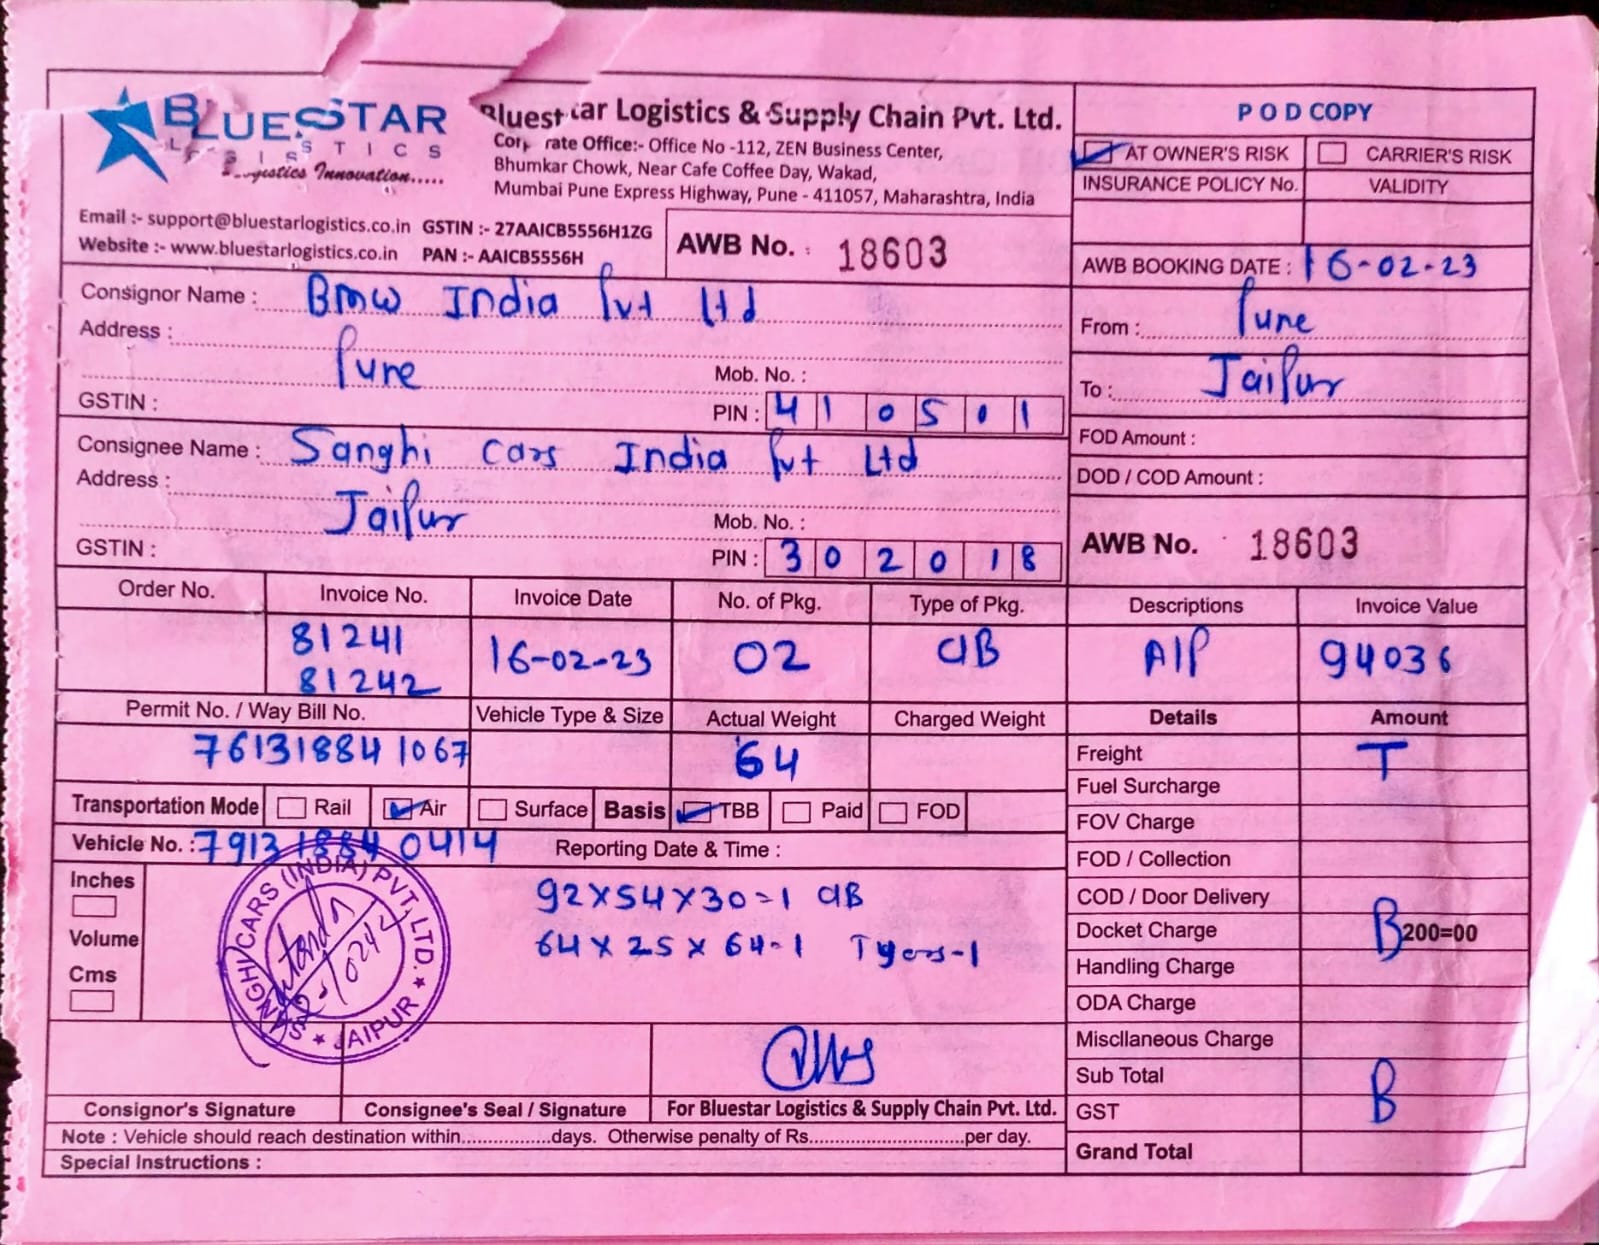 BLUESTAR
LOGISTICS
Logistics Innovation.....
Bluestar Logistics & Supply Chain Pvt. Ltd.
Corporate Office:- Office No -112, ZEN Business Center,
Bhumkar Chowk, Near Cafe Coffee Day, Wakad,
Mumbai Pune Express Highway, Pune - 411057, Maharashtra, India
Email :- support@bluestarlogistics.co.in GSTIN :- 27AAICB5556H1ZG
Website :- www.bluestarlogistics.co.in PAN :- AAICB5556H
AWB No. : 18603
POD COPY
AT OWNER'S RISK CARRIER'S RISK
INSURANCE POLICY No. VALIDITY
AWB BOOKING DATE : 16-02-23
From : Pune
To : Jaipur
FOD Amount :
DOD / COD Amount :
AWB No. 18603
Consignor Name : BMW India Pvt Ltd
Address :
Pune Mob. No. :
GSTIN : PIN : 410501
Consignee Name : Sanghi Cars India Pvt Ltd
Address :
Jaipur Mob. No. :
GSTIN : PIN : 302018
Order No. Invoice No. Invoice Date No. of Pkg. Type of Pkg. Descriptions Invoice Value
81241
81242 16-02-23 02 CIB AIP 94036
Permit No. / Way Bill No. Vehicle Type & Size Actual Weight Charged Weight Details Amount
761318841067 64
Freight T
Fuel Surcharge
FOV Charge
FOD / Collection
COD / Door Delivery
Docket Charge B 200=00
Handling Charge
ODA Charge
Miscllaneous Charge
Sub Total
GST B
Grand Total
Transportation Mode Rail Air Surface Basis TBB Paid FOD
Vehicle No. : 791318840414 Reporting Date & Time :
Inches
Volume
Cms
92x54x30=1 CIB
64x25x64-1 Tyers-1
SANGHI CARS (INDIA) PVT. LTD.
★ JAIPUR ★
Consignor's Signature Consignee's Seal / Signature For Bluestar Logistics & Supply Chain Pvt. Ltd.
Note : Vehicle should reach destination within...............days. Otherwise penalty of Rs...........................per day.
Special Instructions :